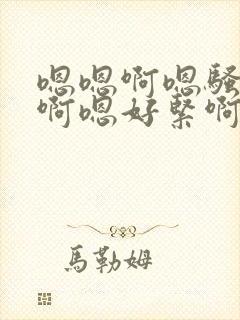 嗯嗯啊嗯骚
啊嗯好紧啊
馬勒姆